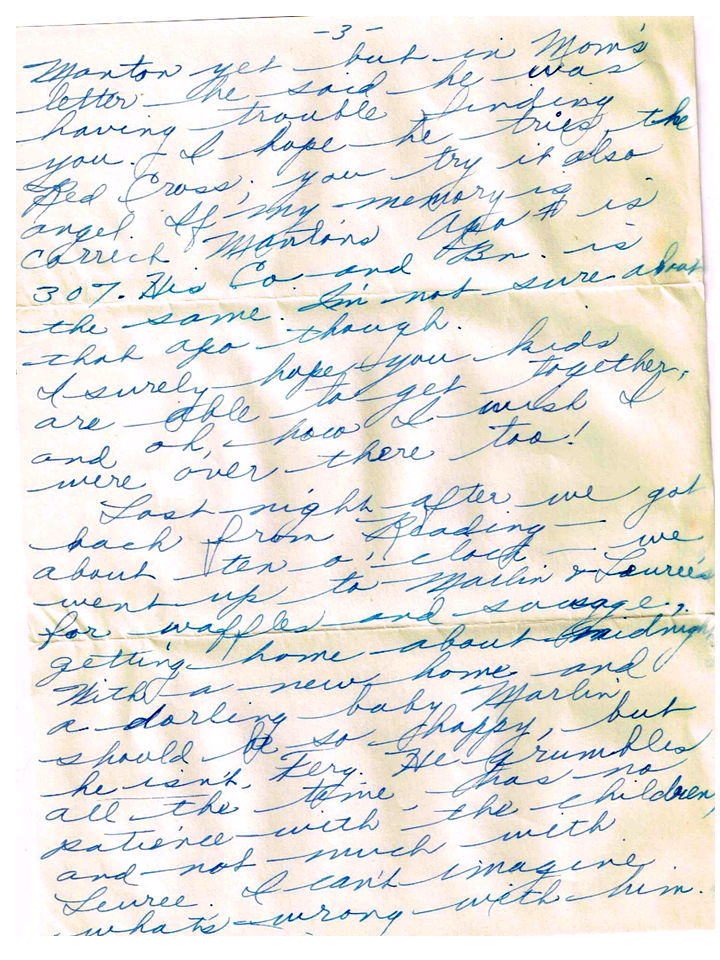 -3-
Manton yet but in Mom's
letter he said he was
having trouble finding
you. I hope he tries the
Red Cross; you try it also
angel. If my memory is
correct Manton's Apo # is
307. His Co and Bn. is
the same. I'm not sure about
that apo though.
I surely hope you kids
are able to get together,
and oh, how I wish I
were over there too!
Last night after we got
back from Reading — we
about ten o'clock — we
went up to Marlin & Louree's
for waffles and sausage,
getting home about midnight
With a new home and
a darling baby Marlin
should be so happy, but
he isn't, Ferg. He grumbles
all the time has no
patience with the children,
and not much with
Louree. I can't imagine
what's wrong with him.